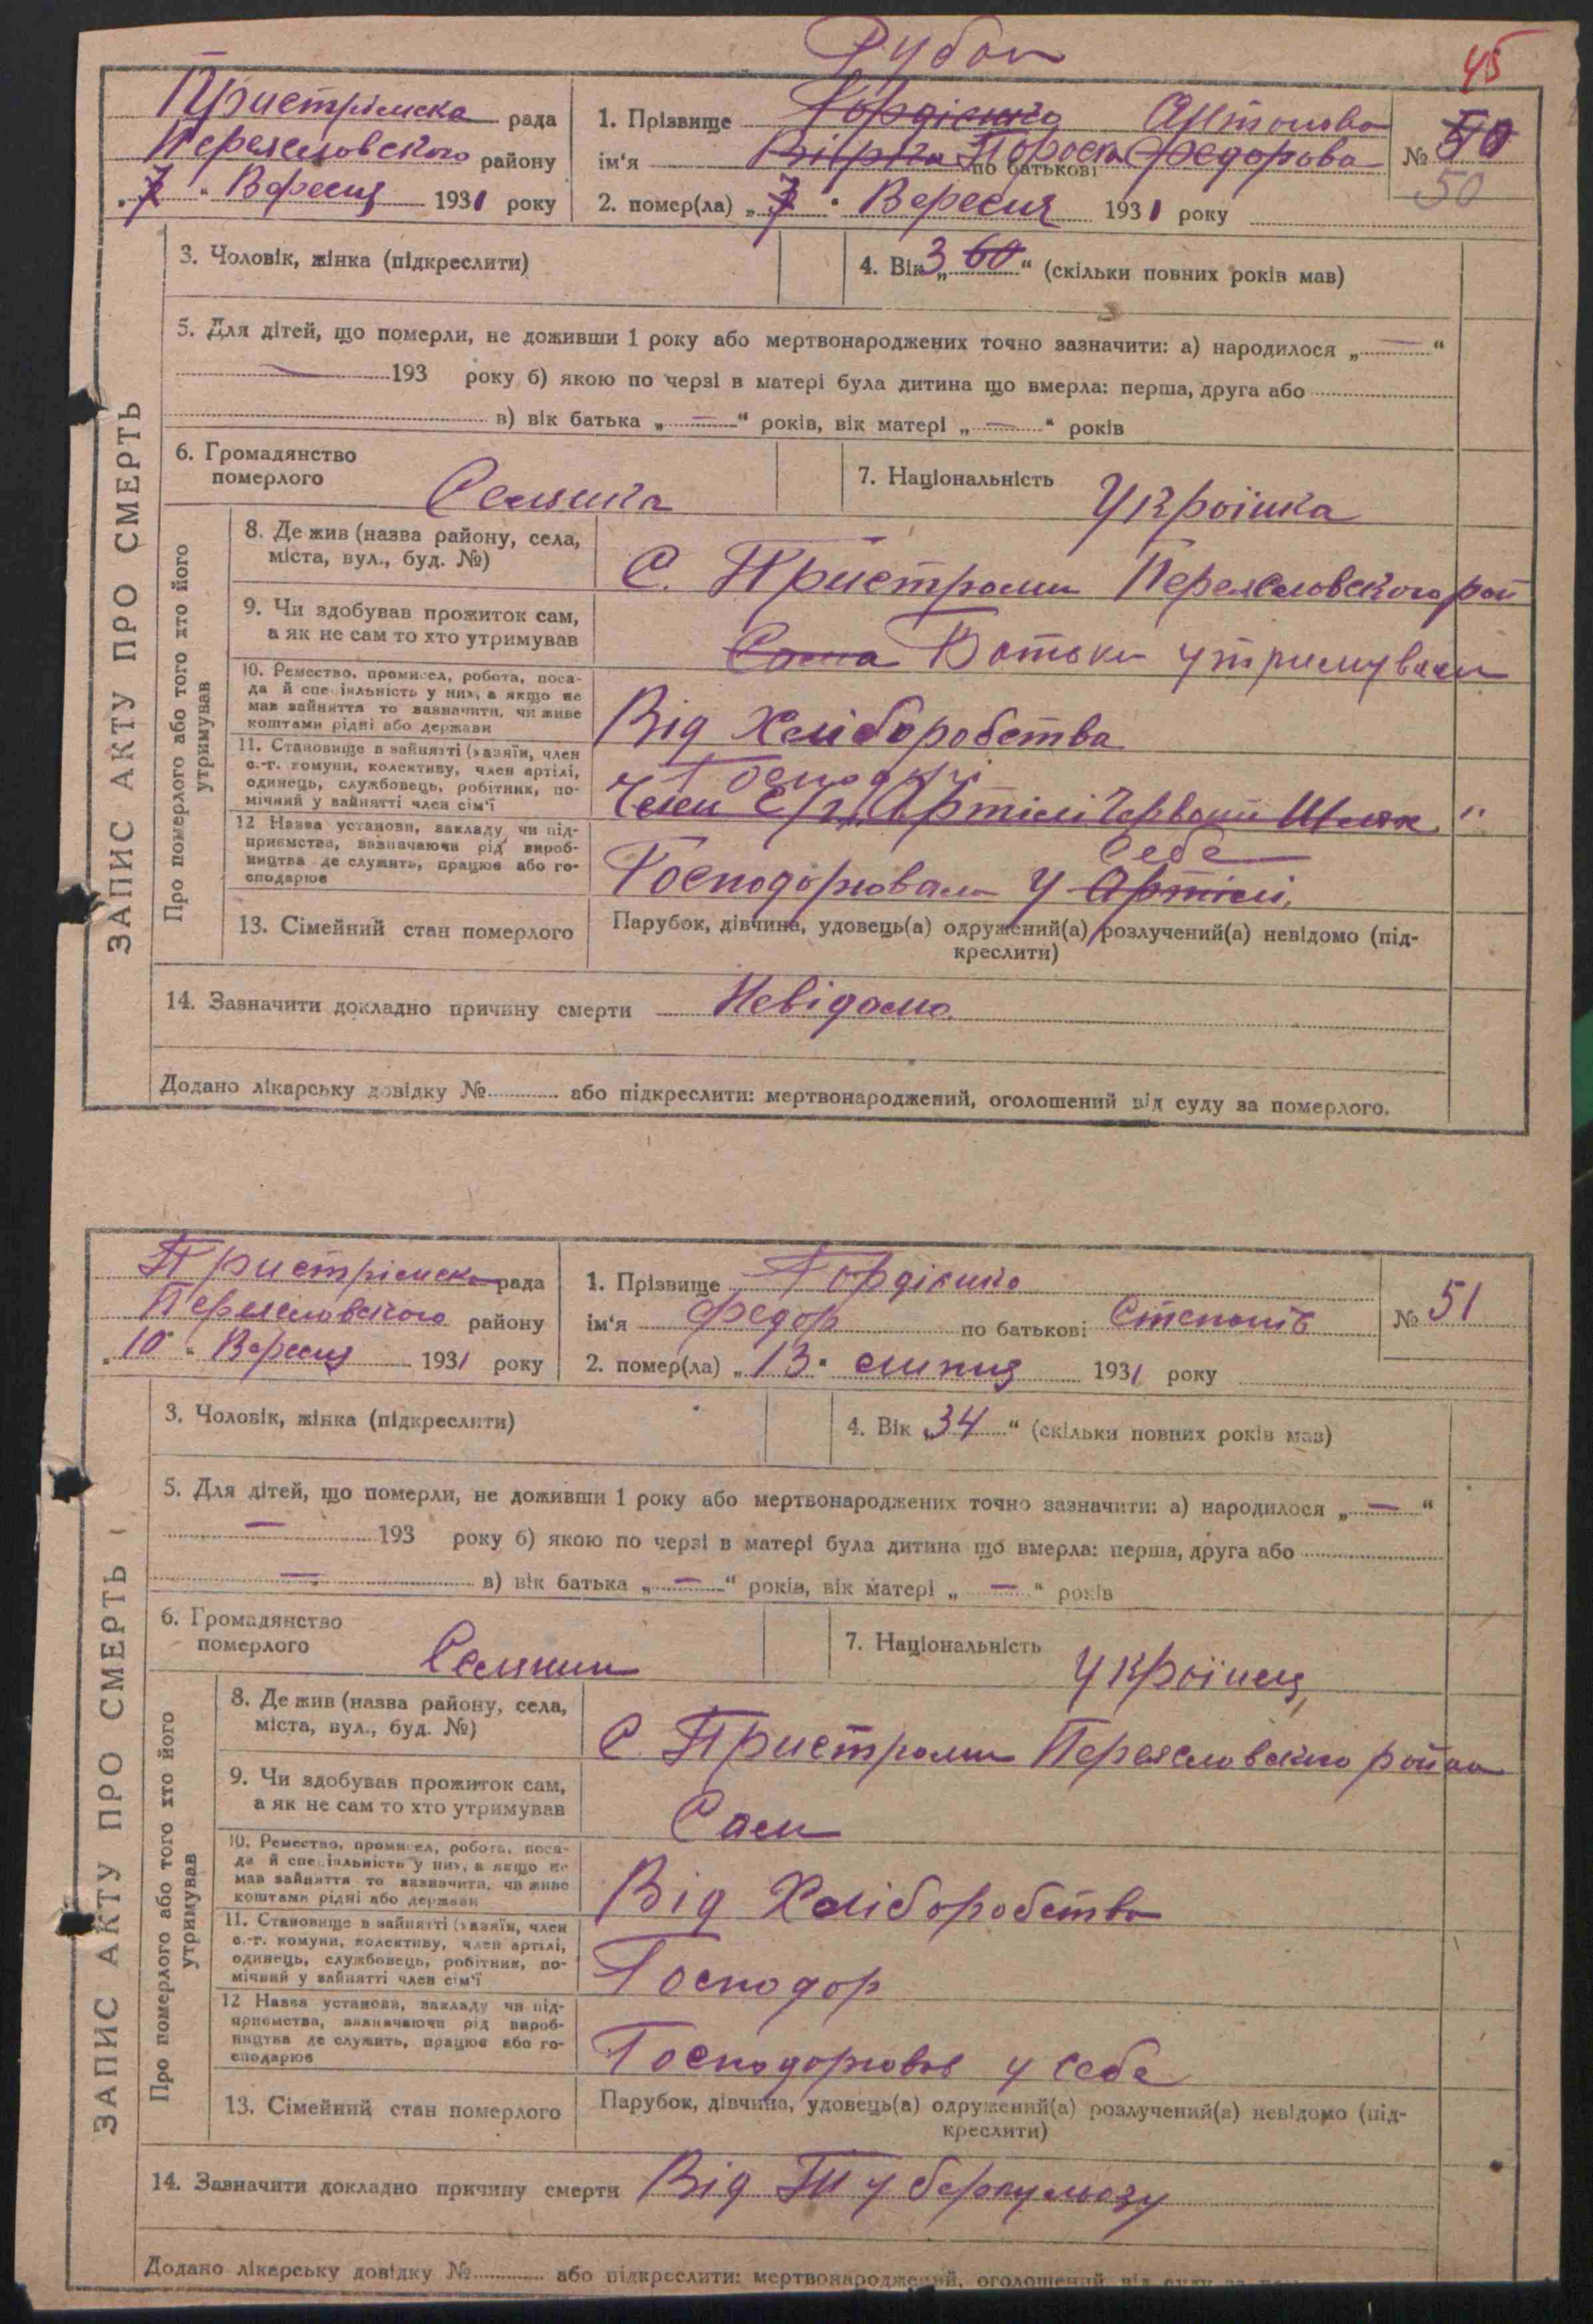 Рубан
45
Пристрімска рада
Переяславського району
"7" Вересня 1931 року
1. Прізвище Гордієнко Антонова
ім'я Параска по батькові Федорова
№ 50
50
2. помер(ла) "7" Вересня 1931 року
3. Чоловік, жінка (підкреслити)
4. Вік 3 „60“ (скільки повних років мав)
5. Для дітей, що померли, не доживши 1 року або мертвонароджених точно зазначити: а) народилося „—“
— 193 року б) якою по черзі в матері була дитина що вмерла: перша, друга або
в) вік батька „—“ років, вік матері „—“ років
6. Громадянство
померлого
Селянка
7. Національність Украінка
ЗАПИС АКТУ ПРО СМЕРТЬ
Про померлого або того хто його
утримував
8. Де жив (назва району, села,
міста, вул., буд. №)
С. Пристроми Переяславського рай
9. Чи здобував прожиток сам,
а як не сам то хто утримував
Сама Батьки утримували
10. Ремество, промисел, робота, поса-
да й спеціяльність у них, а якщо не
мав зайняття то зазначити, чи живе
коштами рідні або держави
Від Хліборобства
11. Становище в зайнятті (хазяїн, член
с.-г. комуни, колективу, член артілі,
одинець, службовець, робітник, по-
мічний у зайнятті член сім'ї
Господарі
Член С/г Артілі Червоний Шлях "
12 Назва установи, закладу чи під-
приємства, зазначаючи рід вироб-
ництва де служить, працює або го-
сподарює
себе
Господарювала у Артілі,
13. Сімейний стан померлого
Парубок, дівчина, удовець(а) одружений(а) розлучений(а) невідомо (під-
креслити)
14. Зазначити докладно причину смерти Невідомо
Додано лікарську довідку № або підкреслити: мертвонароджений, оголошений від суду за померлого.
Пристрімска рада
Переяславського району
"10" Вересня 1931 року
1. Прізвище Гордієнко
ім'я Федор по батькові Степанів
№ 51
2. помер(ла) „13" липня 1931 року
3. Чоловік, жінка (підкреслити)
4. Вік „34“ (скільки повних років мав)
5. Для дітей, що померли, не доживши 1 року або мертвонароджених точно зазначити: а) народилося „—“
— 193 року б) якою по черзі в матері була дитина що вмерла: перша, друга або
— в) вік батька „—“ років, вік матері „—“ років
6. Громадянство
померлого
Селянин
7. Національність Украінец
ЗАПИС АКТУ ПРО СМЕРТЬ
Про померлого або того хто його
утримував
8. Де жив (назва району, села,
міста, вул., буд. №)
С. Пристроми Переяславського району
9. Чи здобував прожиток сам,
а як не сам то хто утримував
Сам
10. Ремество, промисел, робота, поса-
да й спеціяльність у них, а якщо не
мав зайняття то зазначити, чи живе
коштами рідні або держави
Від Хліборобства
11. Становище в зайнятті (хазяїн, член
с.-г. комуни, колективу, член артілі,
одинець, службовець, робітник, по-
мічний у зайнятті член сім'ї
Господар
12 Назва установи, закладу чи під-
приємства, зазначаючи рід вироб-
ництва де служить, працює або го-
сподарює
Господорював у себе
13. Сімейний стан померлого
Парубок, дівчина, удовець(а) одружений(а) розлучений(а) невідомо (під-
креслити)
14. Зазначити докладно причину смерти Від Туберкульозу
Додано лікарську довідку № або підкреслити: мертвонароджений, оголошений від суду за